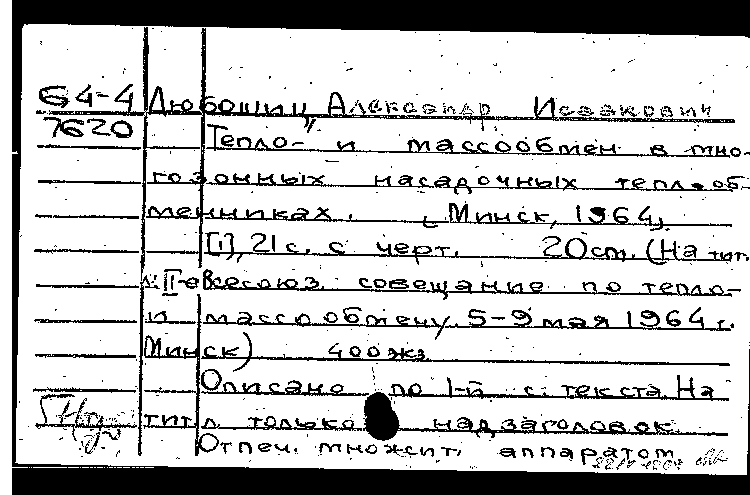 64-4 Любошиц, Александр Исаакович
7620 Тепло- и массообмен в мно-
гозонных насадочных теплооб-
менниках. [Минск, 1964].
[1], 21 с. с черт. 20 cm. (На тит.
л.: II-е Всесоюз. совещание по тепло-
и массообмену. 5-9 мая 1964 г.
Минск) 400 экз.
Описано по 1-й с. текста. На
тит. л. только надзаголовок.
Отпеч. множит. аппаратом